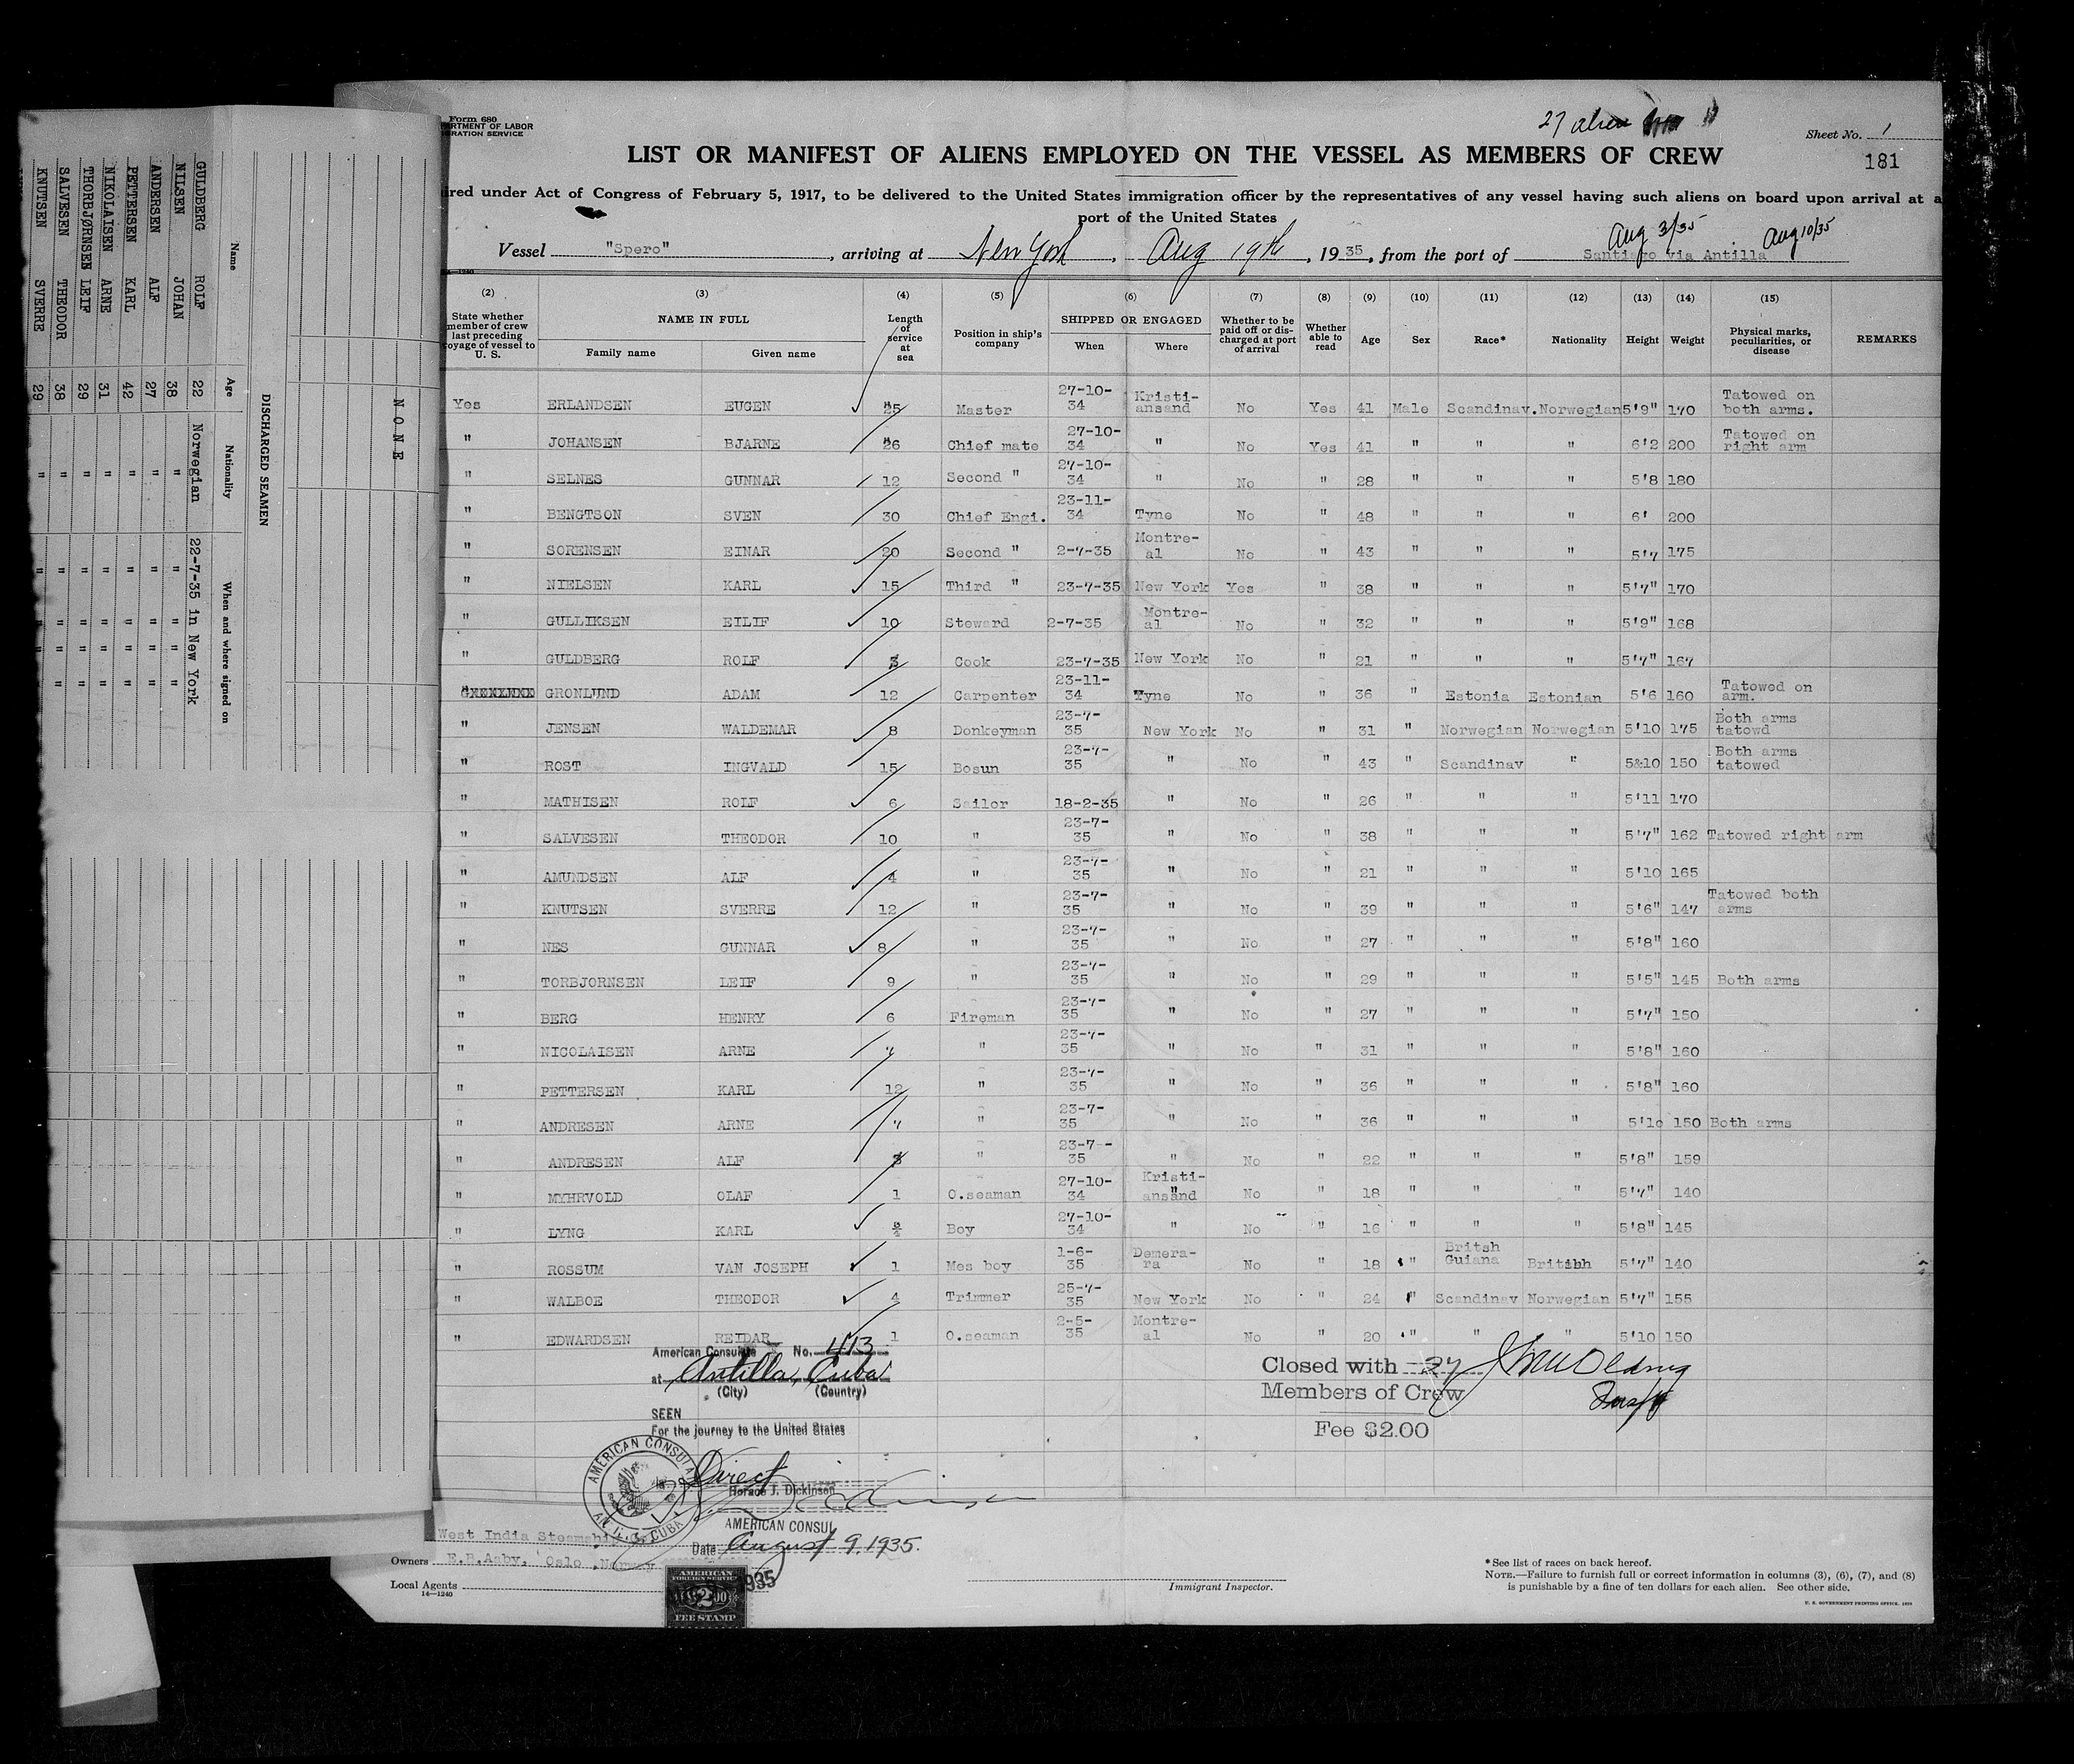 Form 680
RTMENT OF LABOR
GRATION SERVICE
27 alien
Sheet No. 1
181
LIST OR MANIFEST OF ALIENS EMPLOYED ON THE VESSEL AS MEMBERS OF CREW
ired under Act of Congress of February 5, 1917, to be delivered to the United States immigration officer by the representatives of any vessel having such aliens on board upon arrival at a
port of the United States
Aug 3/35 Aug 10/35
Vessel "Spero", arriving at New York, Aug 19th, 1935, from the port of Santiago via Antilla
(2) (3) (4) (5) (6) (7) (8) (9) (10) (11) (12) (13) (14) (15)
State whether member of crew last preceding voyage of vessel to U. S. NAME IN FULL Family name Given name Length of service at sea Position in ship's company SHIPPED OR ENGAGED When Where Whether to be paid off or discharged at port of arrival Whether able to read Age Sex Race* Nationality Height Weight Physical marks, peculiarities, or disease REMARKS
Yes ERLANDSEN EUGEN 25 Master 27-10-34 Kristiansand No Yes 41 Male Scandinav. Norwegian 5'9" 170 Tatowed on both arms.
" JOHANSEN BJARNE 26 Chief mate 27-10-34 " No Yes 41 " " " 6'2 200 Tatowed on right arm
" SELNES GUNNAR 12 Second " 27-10-34 " No " 28 " " " 5'8 180
" BENGTSON SVEN 30 Chief Engi. 23-11-34 Tyne No " 48 " " " 6' 200
" SORENSEN EINAR 20 Second " 2-7-35 Montreal No " 43 " " " 5'7 175
" NIELSEN KARL 15 Third " 23-7-35 New York Yes " 38 " " " 5'7" 170
" GULLIKSEN EILIF 10 Steward 2-7-35 Montreal No " 32 " " " 5'9" 168
" GULDBERG ROLF 3 Cook 23-7-35 New York No " 21 " " " 5'7" 167
" GRONLUND ADAM 12 Carpenter 23-11-34 Tyne No " 36 " Estonia Estonian 5'6 160 Tatowed on arm.
" JENSEN WALDEMAR 8 Donkeyman 23-7-35 New York No " 31 " Norwegian Norwegian 5'10 175 Both arms tatowd
" ROST INGVALD 15 Bosun 23-7-35 " No " 43 " Scandinav " 5&10 150 Both arms tatowed
" MATHISEN ROLF 6 Sailor 18-2-35 " No " 26 " " " 5'11 170
" SALVESEN THEODOR 10 " 23-7-35 " No " 38 " " " 5'7" 162 Tatowed right arm
" AMUNDSEN ALF 4 " 23-7-35 " No " 21 " " " 5'10 165
" KNUTSEN SVERRE 12 " 23-7-35 " No " 39 " " " 5'6" 147 Tatowed both arms
" NES GUNNAR 8 " 23-7-35 " No " 27 " " " 5'8" 160
" TORBJORNSEN LEIF 9 " 23-7-35 " No " 29 " " " 5'5" 145 Both arms
" BERG HENRY 6 Fireman 23-7-35 " No " 27 " " " 5'7" 150
" NICOLAISEN ARNE 7 " 23-7-35 " No " 31 " " " 5'8" 160
" PETTERSEN KARL 12 " 23-7-35 " No " 36 " " " 5'8" 160
" ANDRESEN ARNE 7 " 23-7-35 " No " 36 " " " 5'10 150 Both arms
" ANDRESEN ALF 3 " 23-7-35 " No " 22 " " " 5'8" 159
" MYHRVOLD OLAF 1 O.seaman 27-10-34 Kristiansand No " 18 " " " 5'7" 140
" LYNG KARL Boy 27-10-34 " No " 16 " " " 5'8" 145
" ROSSUM VAN JOSEPH 1 Mes boy 1-6-35 Demerara No " 18 " Britsh Guiana Britihh 5'7" 140
" WALBOE THEODOR 4 Trimmer 25-7-35 New York No " 24 " Scandinav Norwegian 5'7" 155
" EDWARDSEN REIDAR 1 O.seaman 2-5-35 Montreal No " 20 " " " 5'10 150
American Consulate No. 413
at Antilla, Cuba
(City) (Country)
SEEN
For the journey to the United States
Direct
Horace J. Dickinson
AMERICAN CONSUL
Date August 9, 1935.
AMERICAN CONSULA
ANTILLA, CUBA
AMERICAN
FOREIGN SERVICE
$2.00
FEE STAMP
1935
Closed with 27
Members of Crew
Fee $2.00
West India Steamship Co.
Owners E.B.Aaby, Oslo, Norway
Local Agents
14—1240
Immigrant Inspector.
*See list of races on back hereof.
NOTE.—Failure to furnish full or correct information in columns (3), (6), (7), and (8)
is punishable by a fine of ten dollars for each alien. See other side.
U. S. GOVERNMENT PRINTING OFFICE
NONE
DISCHARGED SEAMEN
Name Age Nationality When and where signed on
GULDBERG ROLF 22 Norwegian 22-7-35 in New York
NILSEN JOHAN 38 " " " " "
ANDERSEN ALF 27 " " " " "
PETTERSEN KARL 42 " " " " "
NIKOLAISEN ARNE 31 " " " " "
THORBJØRNSEN LEIF 29 " " " " "
SALVESEN THEODOR 38 " " " " "
KNUTSEN SVERRE 29 " " " " "